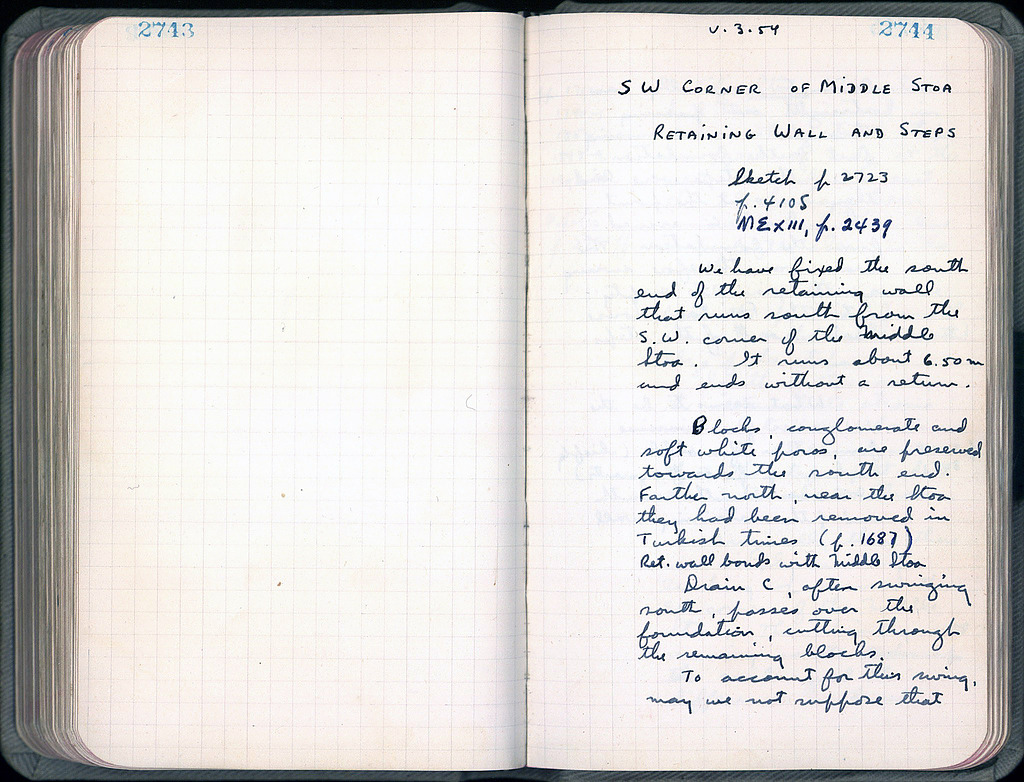 2743
2744
V.3.54
SW CORNER OF MIDDLE STOA
RETAINING WALL AND STEPS
Sketch p 2723
p. 4105
ME XIII, p. 2439
We have fixed the south
end of the retaining wall
that runs south from the
S.W. corner of the Middle
Stoa. It runs about 6.50 m
and ends without a return.
Blocks, conglomerate and
soft white poros, are preserved
towards the south end.
Farther north, near the Stoa
they had been removed in
Turkish times (p. 1687)
Ret. wall bonds with Middle Stoa
Drain C, after swinging
south, passes over the
foundation, cutting through
the remaining blocks.
To account for this swing,
may we not suppose that